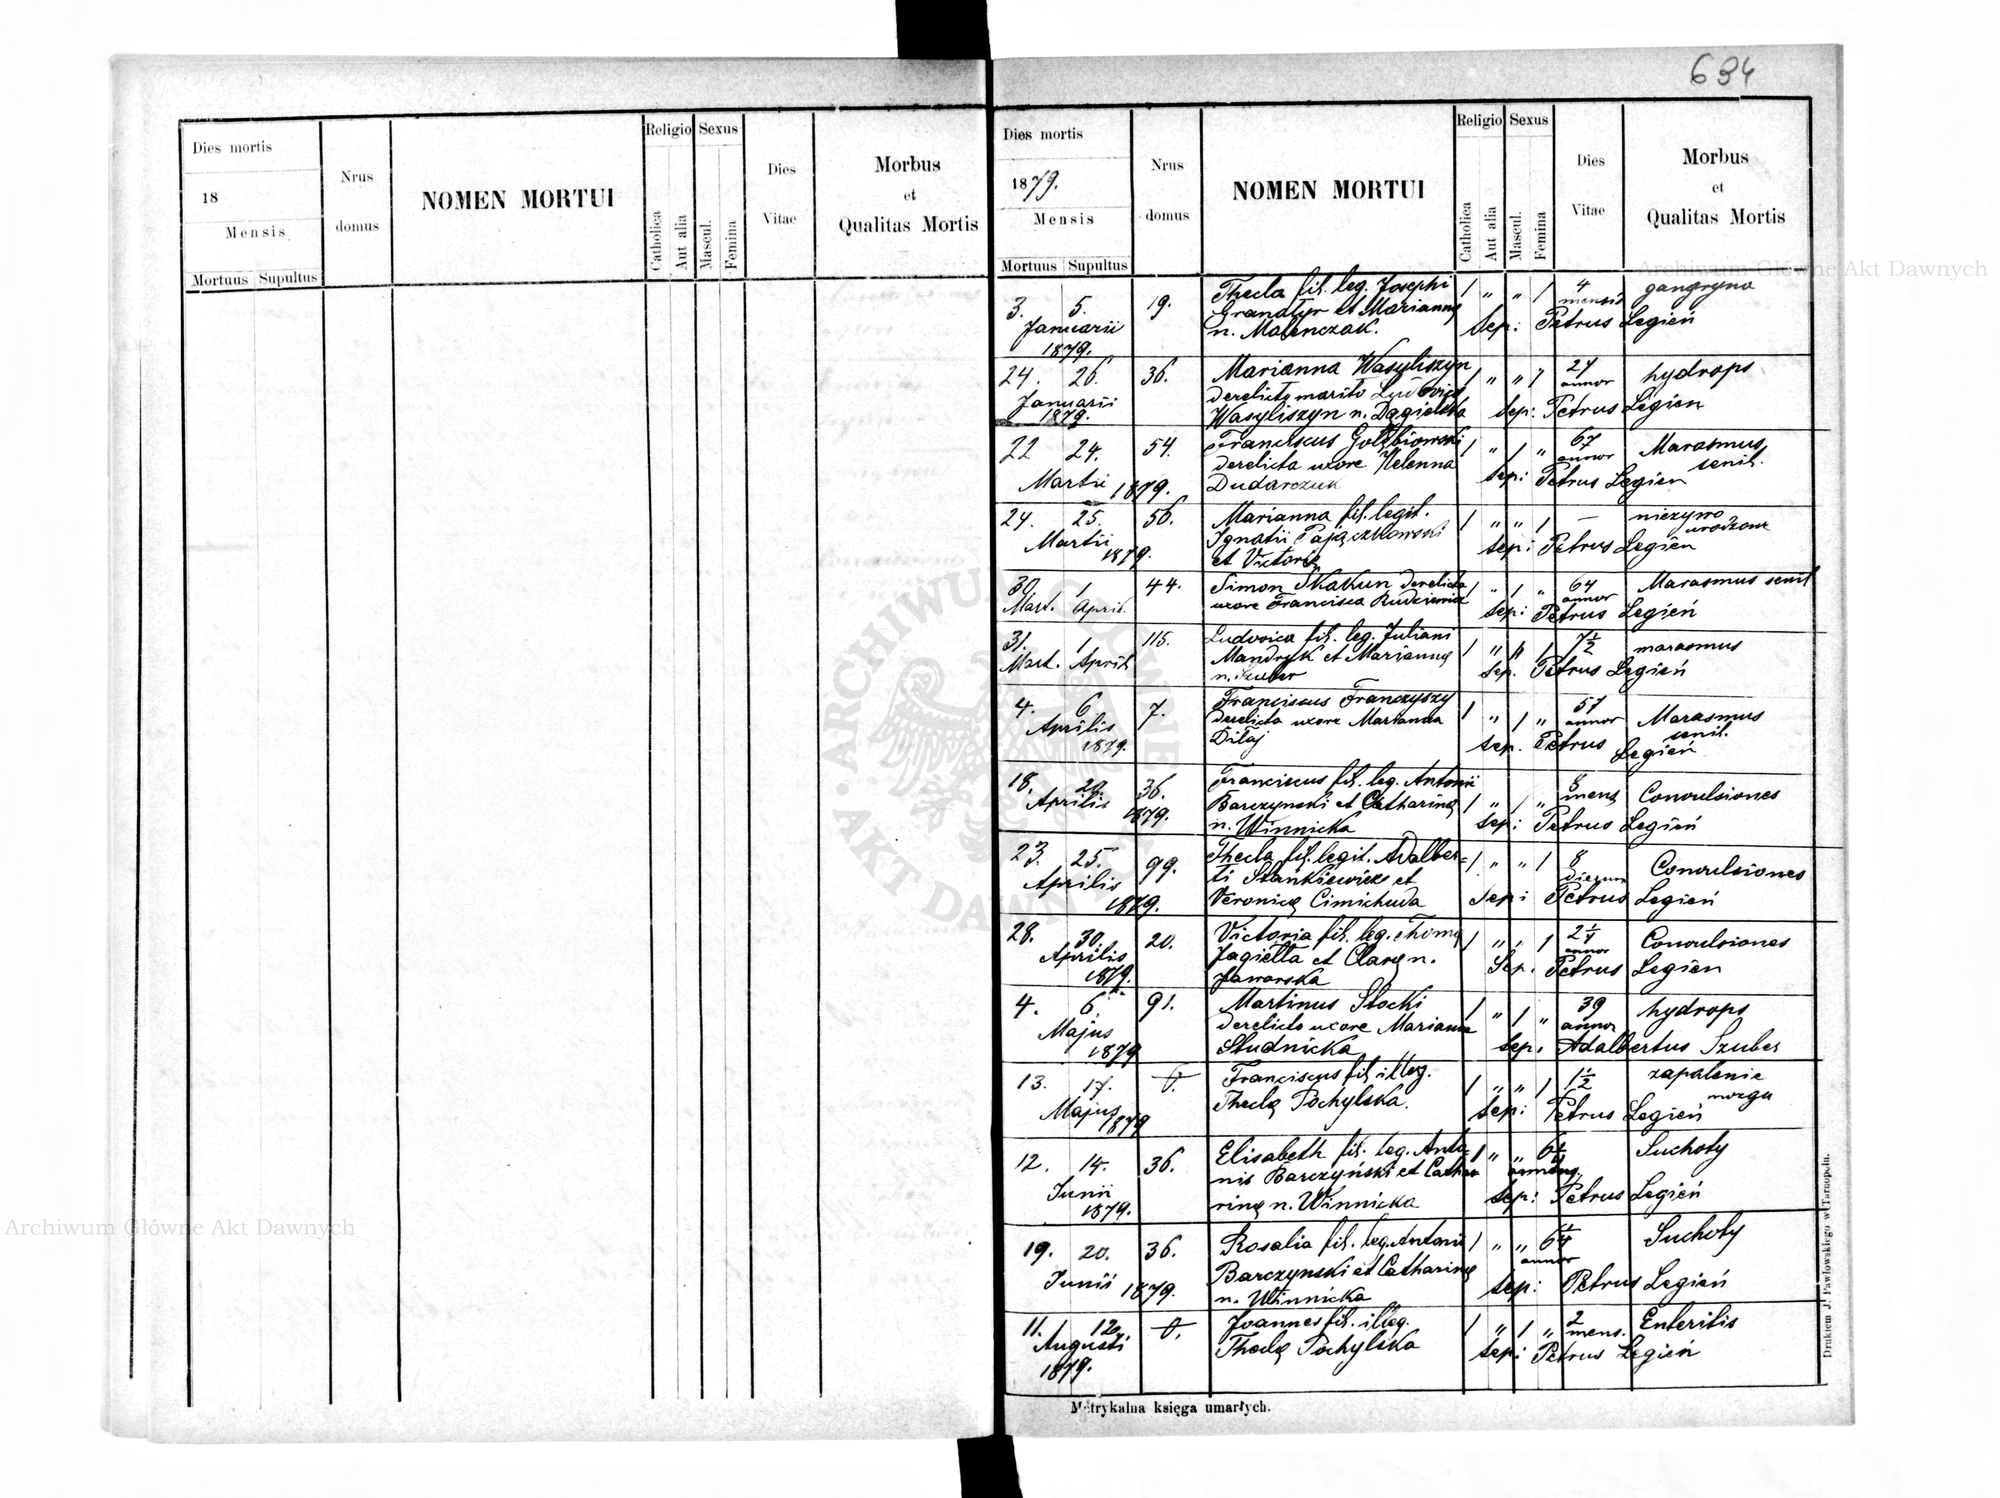 634
Dies mortis
18
Mensis
Mortuus Supultus
Nrus
domus
NOMEN MORTUI
Religio
Catholica
Aut alia
Sexus
Mascul.
Femina
Dies
Vitae
Morbus
et
Qualitas Mortis
Dies mortis
1879.
Mensis
Mortuus Supultus
Nrus
domus
NOMEN MORTUI
Religio
Catholica
Aut alia
Sexus
Mascul.
Femina
Dies
Vitae
Morbus
et
Qualitas Mortis
3. 5. 19. Thecla fil. leg. Josephi 1 " " 1 4 gangryna
Januarii et Marianny mensis
1879. n. Malenczak. Sep: Petrus Legień
24. 26. 36. Marianna Wasyliszyn 1 " " 1 27 hydrops
Januarii derelicto marito annor
1879. Wasyliszyn n. Sep: Petrus Legien
22 24. 54. Franciscus 1 " 1 " 67 Marasmus
derelicta uxore Helenna annor senil.
Martii 1879. Dudarczuk Sep: Petrus Legien
24. 25. 56. Marianna fil. legit. 1 " " 1 — niezywo
Martii Ignatii Pajączkowski urodzone
1879. et Victorię Sep: Petrus Legień
30 1 44. Simon Skakun derelicta 1 " 1 " 64 Marasmus senil
Mart. April. uxore Francisca Rudziewicz annor
Sep: Petrus Legień
31. 1 115. Ludovica fil. leg. Juliani 1 " " 1 7½ marasmus
Mart. Aprili Mandryk et Mariannę
n. Szuber Sep. Petrus Legień
4. 6 7. Franciscus Franczyszy 1 " 1 " 57 Marasmus
Aprilis derelicta uxore Marianna annor senil.
1879. Diłaj Sep. Petrus Legień
18. 20 36. Franciscus fil. leg. Antonii 8 Convulsiones
Aprilis Barczynski et Catharinę 1 " 1 " mens
1879. n. Winnicka Sep: Petrus Legień
23. 25. 99. Thecla fil. legit. Adalber= 1 " " 1 8 Convulsiones
Aprilis ti Stankiewicz et dierum
1879. Veronicę Cimichuda Sep: Petrus Legień
28. 30. 20. Victoria fil. leg. Thomę 1 " " 1 2¼ Convulsiones
Aprilis Jagiełła et Clarę n. annor
1879. Jaworska Sep. Petrus Legien
4. 6 91. Martinus Słocki 1 " 1 " 39 hydrops
Majus derelicto uxore Marianna annor
1879 Studnicka Sep. Adalbertus Szuber
13. 17. 0. Franciscus fil illeg. 1 " " 1 1½ zapalenie
Majus Theclę Pochylska. mozgu
1879 Sep: Petrus Legień
12. 14. 36. Elisabeth fil. leg. Anto= 1 " " Suchoty
Junii nii Barczyński et Catha
1879. rinę n. Winnicka Sep: Petrus Legień
19. 20. 36. Rosalia fil. leg. Antonii 1 " " 6¼ Suchoty
Junii Barczynski et Catharinę annor
1879. n. Winnicka Sep: Petrus Legień
11. 12. 0. Joannes fil. illeg. 1 " 1 " 2 Enteritis
Augusti Theclę Pochylska mens.
1879. Sep: Petrus Legień
Metrykalna księga umarłych.
Drukiem J. Pawłowskiego w Tarnopolu.
Archiwum Główne Akt Dawnych
Archiwum Główne Akt Dawnych
ARCHIWUM GŁÓWNE AKT DAWNYCH